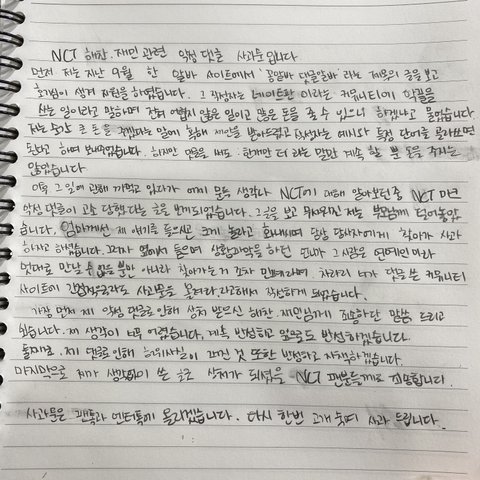 NCT 해찬, 재민 관련 악성 댓글 사과문입니다
먼저 저는 지난 9월 한 알바 사이트에서 '꿀알바 댓글알바'라는 제목의 글을 보고
호기심이 생겨 지원을 하였습니다. 그 작성자는 네이트판 이라는 커뮤니티에 악플을
쓰는 일이라고 말하며 전혀 어렵지 않은 일이고 많은 돈을 줄 수 있으니 하겠냐고 물었습니다
저는 순간 큰 돈을 주겠다는 말에 혹해 제안을 받아드렸고 작성자는 예시와 특정 단어를 골라쓰면
된다고 하며 보내주었습니다. 하지만 댓글을 써도 한개만 더 라는 말만 계속 할 뿐 돈을 주지는
않았습니다
이후 그 일에 관해 까먹고 있다가 어제 문득 생각나 NCT에 대해 알아보던중 NCT 마크
악성 댓글이 고소 당했다는 글을 보게되었습니다. 그 글을 보고 무서워진 저는 부모님께 털어놓았
습니다. 엄마께선 제 얘기를 들으시곤 크게 놀라고 화내시며 당장 당사자에게 찾아가 사과
하자고 하셨습니다. 그러자 옆에서 들으며 상황파악을 하던 언니가 그 사람은 연예인이라
맘대로 만날 수 없을 뿐만 아니라 찾아가는거 조차 민폐라며, 차라리 너가 댓글 쓴 커뮤니티
사이트에 간접적으로라도 사과문을 올려라,라고해서 작성하게 되었습니다.
가장 먼저 제 악성 댓글로 인해 상처 받으신 해찬, 재민님께 죄송하단 말씀 드리고
싶습니다. 제 생각이 너무 어렸습니다, 계속 반성하고 앞으로도 반성하겠습니다.
둘째로, 제 댓글로 인해 허위사실이 퍼진 것 또한 반성하고 자책하겠습니다.
마지막으로 제가 생각없이 쓴 글로 상처가 되셨을 NCT 팬분들께도 죄송합니다.
사과문은 팬톡과 엔터톡에 올리겠습니다. 다시 한번 고개 숙여 사과 드립니다.